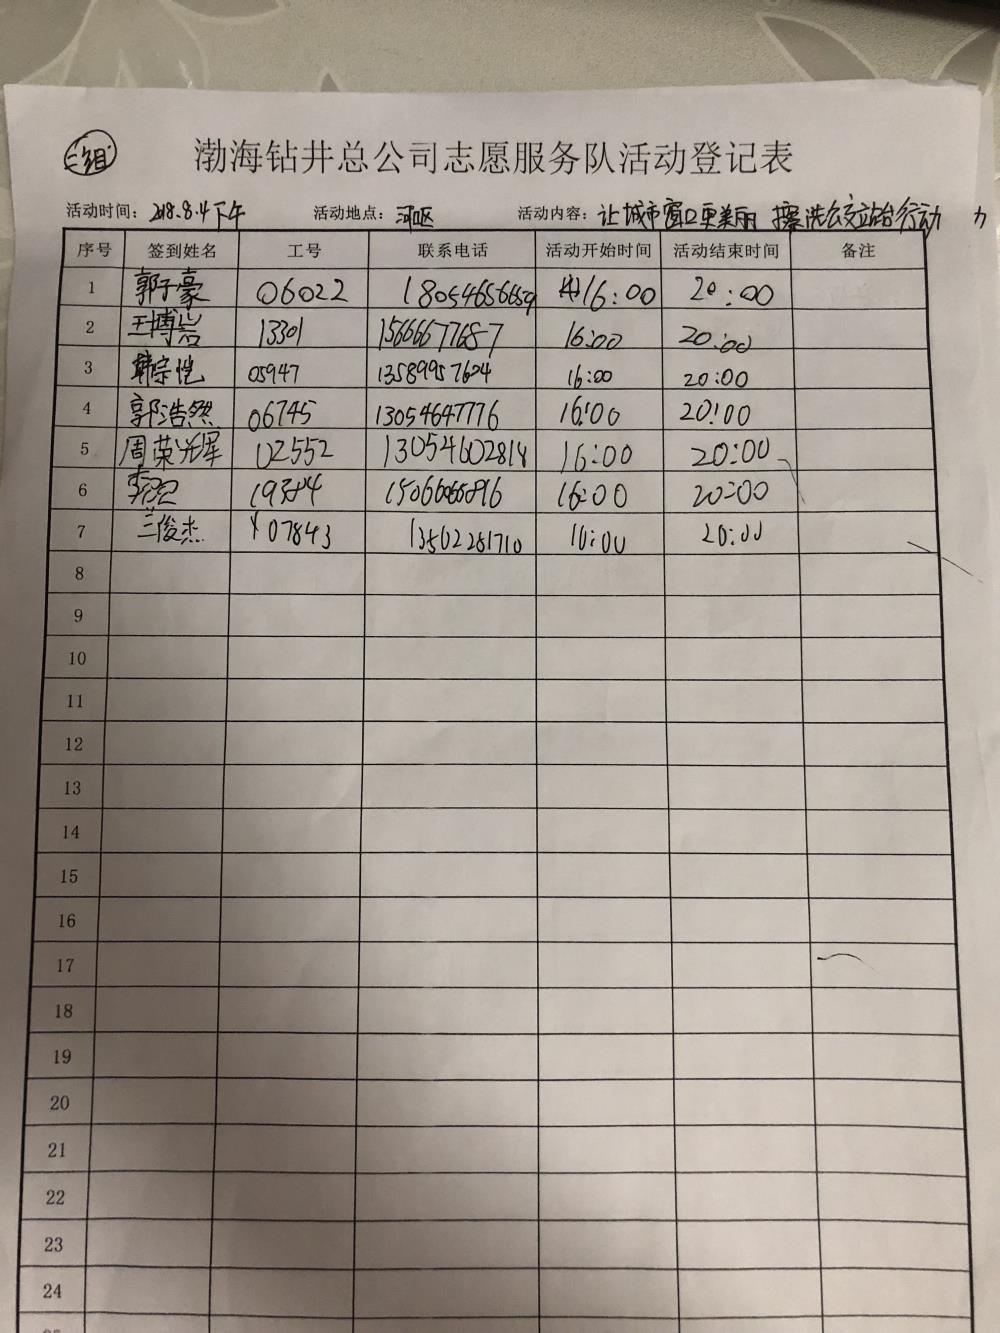 三组
渤海钻井总公司志愿服务队活动登记表
活动时间: 2018.8.4下午 活动地点: 河口区 活动内容: 让城市窗口更美丽 擦洗公交站台行动
序号 签到姓名 工号 联系电话 活动开始时间 活动结束时间 备注
1 郭子豪 06022 18054656659 16:00 20:00
2 王博岩 13301 15666677687 16:00 20:00
3 韩宗恺 05947 13589957604 16:00 20:00
4 郭浩然 06745 13054647776 16:00 20:00
5 周荣光辉 02552 13054602818 16:00 20:00
6 19384 16:00 20:00
7 兰俊杰 07843 13562281710 16:00 20:00
8
9
10
11
12
13
14
15
16
17
18
19
20
21
22
23
24